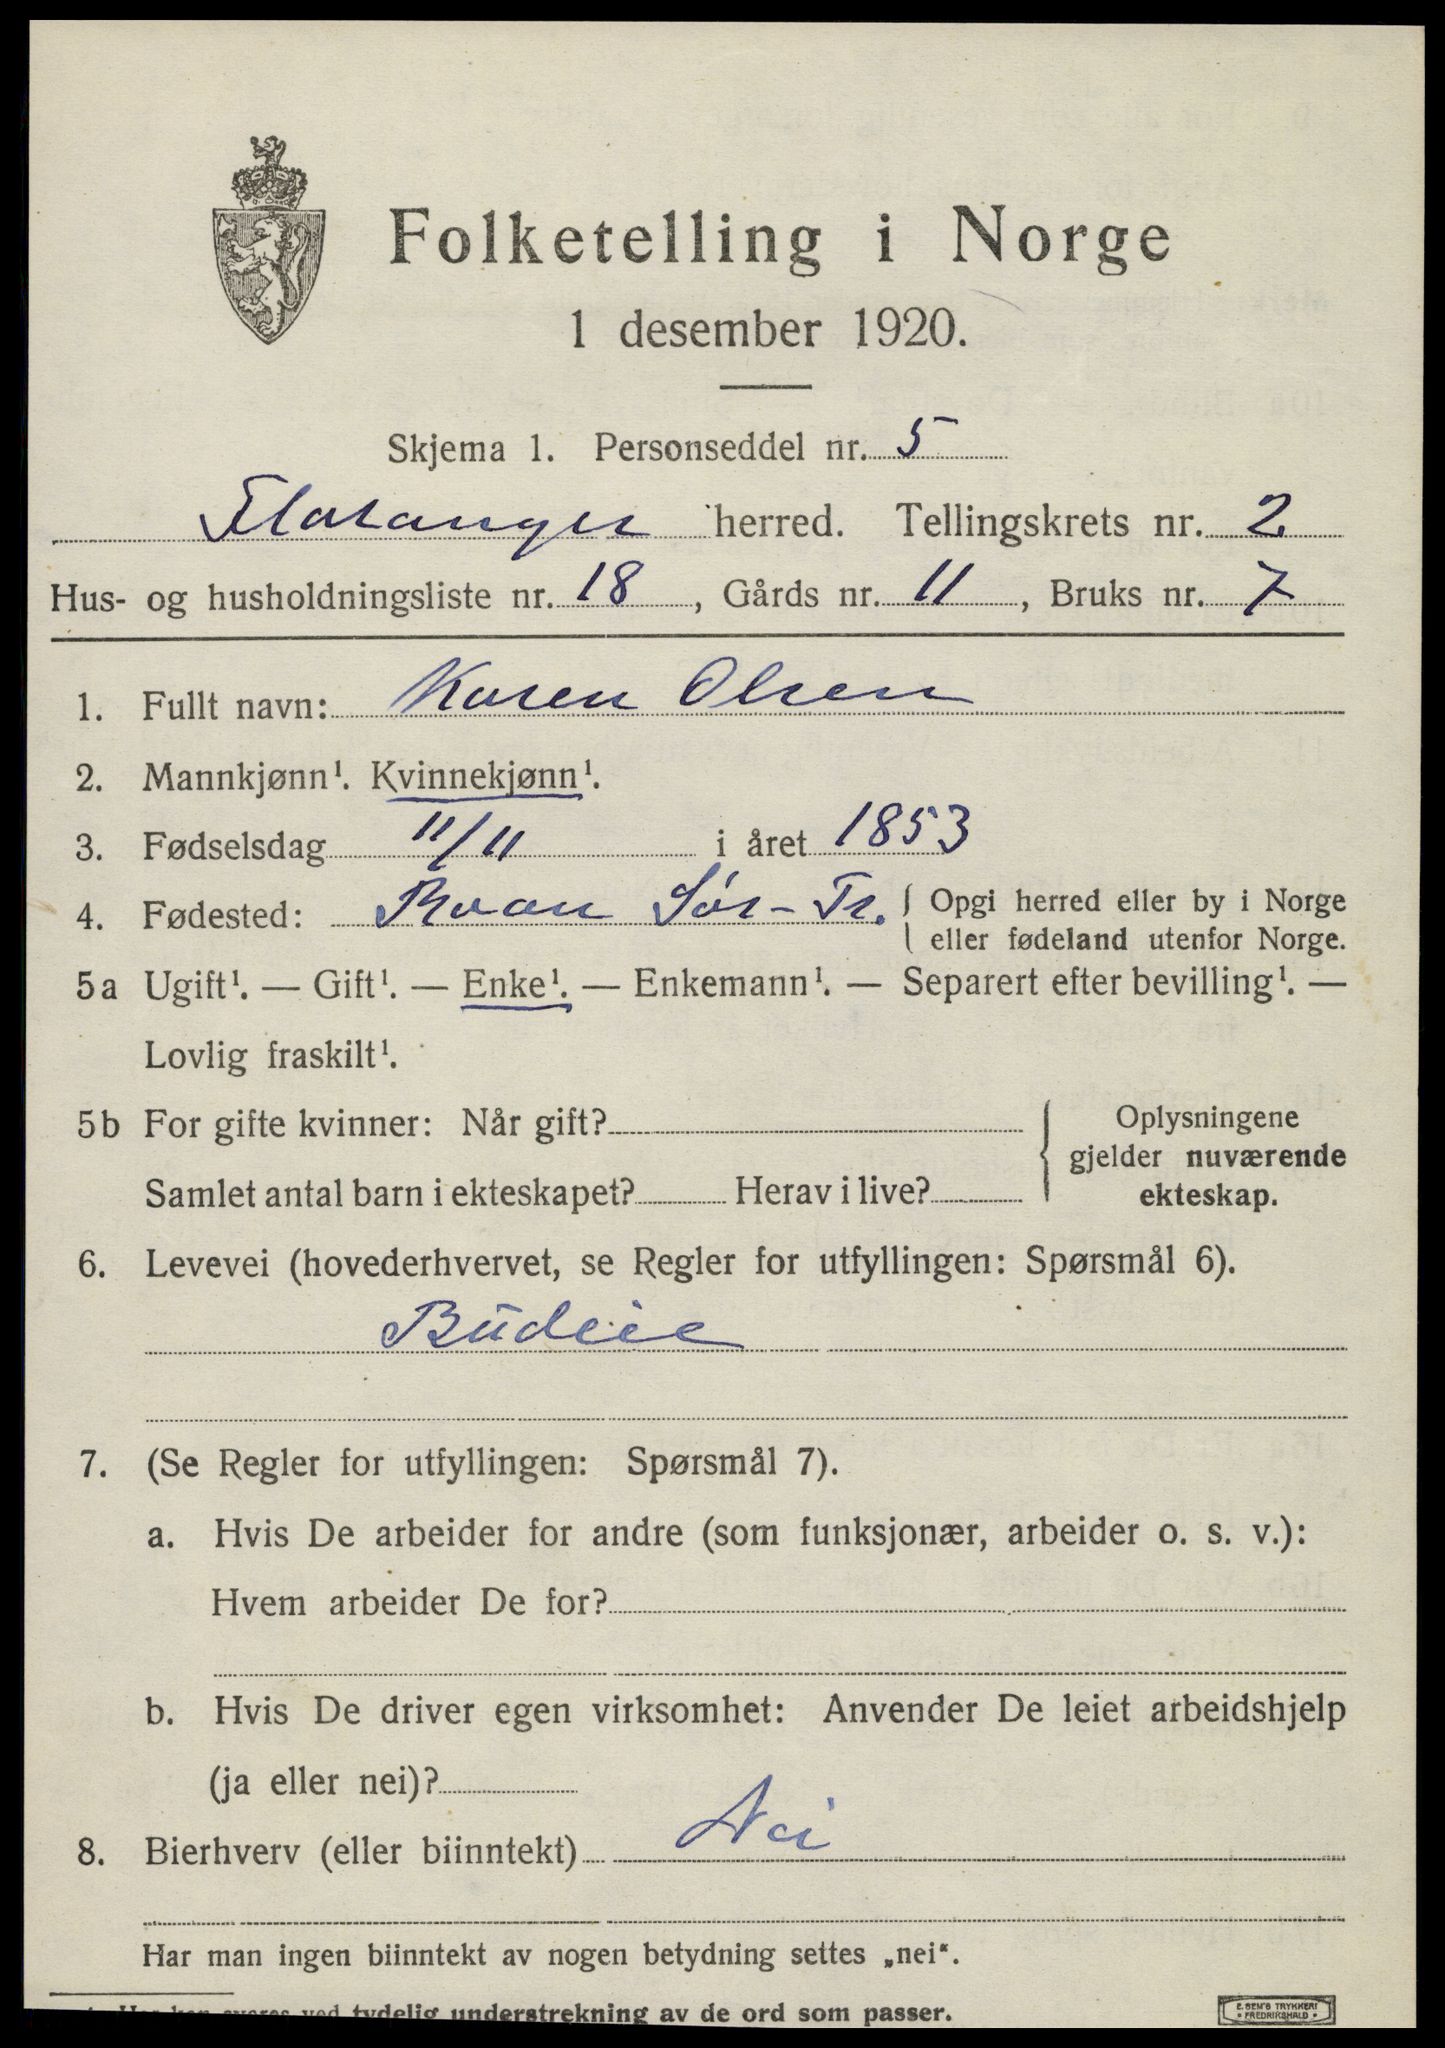 Folketelling i Norge
1 desember 1920.
Skjema 1. Personseddel nr. 5
Flatanger herred. Tellingskrets nr. 2
Hus- og husholdningsliste nr. 18, Gårds nr. 11, Bruks nr. 7
1. Fullt navn: Karen Olsen
2. Mannkjønn¹. Kvinnekjønn¹.
3. Fødselsdag 11/11 i året 1853
4. Fødested: Roan Sør-Tr. { Opgi herred eller by i Norge
eller fødeland utenfor Norge.
5a Ugift¹. — Gift¹. — Enke¹. — Enkemann¹. — Separert efter bevilling¹. —
Lovlig fraskilt¹.
5b For gifte kvinner: Når gift?
Samlet antal barn i ekteskapet? Herav i live?
Oplysningene
gjelder nuværende
ekteskap.
6. Levevei (hovederhvervet, se Regler for utfyllingen: Spørsmål 6).
Budeie
7. (Se Regler for utfyllingen: Spørsmål 7).
a. Hvis De arbeider for andre (som funksjonær, arbeider o. s. v.):
Hvem arbeider De for?
b. Hvis De driver egen virksomhet: Anvender De leiet arbeidshjelp
(ja eller nei)?
8. Bierhverv (eller biinntekt) Nei
Har man ingen biinntekt av nogen betydning settes „nei“.
tydelig understrekning av de ord som passer.
E. SEM'S TRYKKERI
• FREDRIKSHALD •